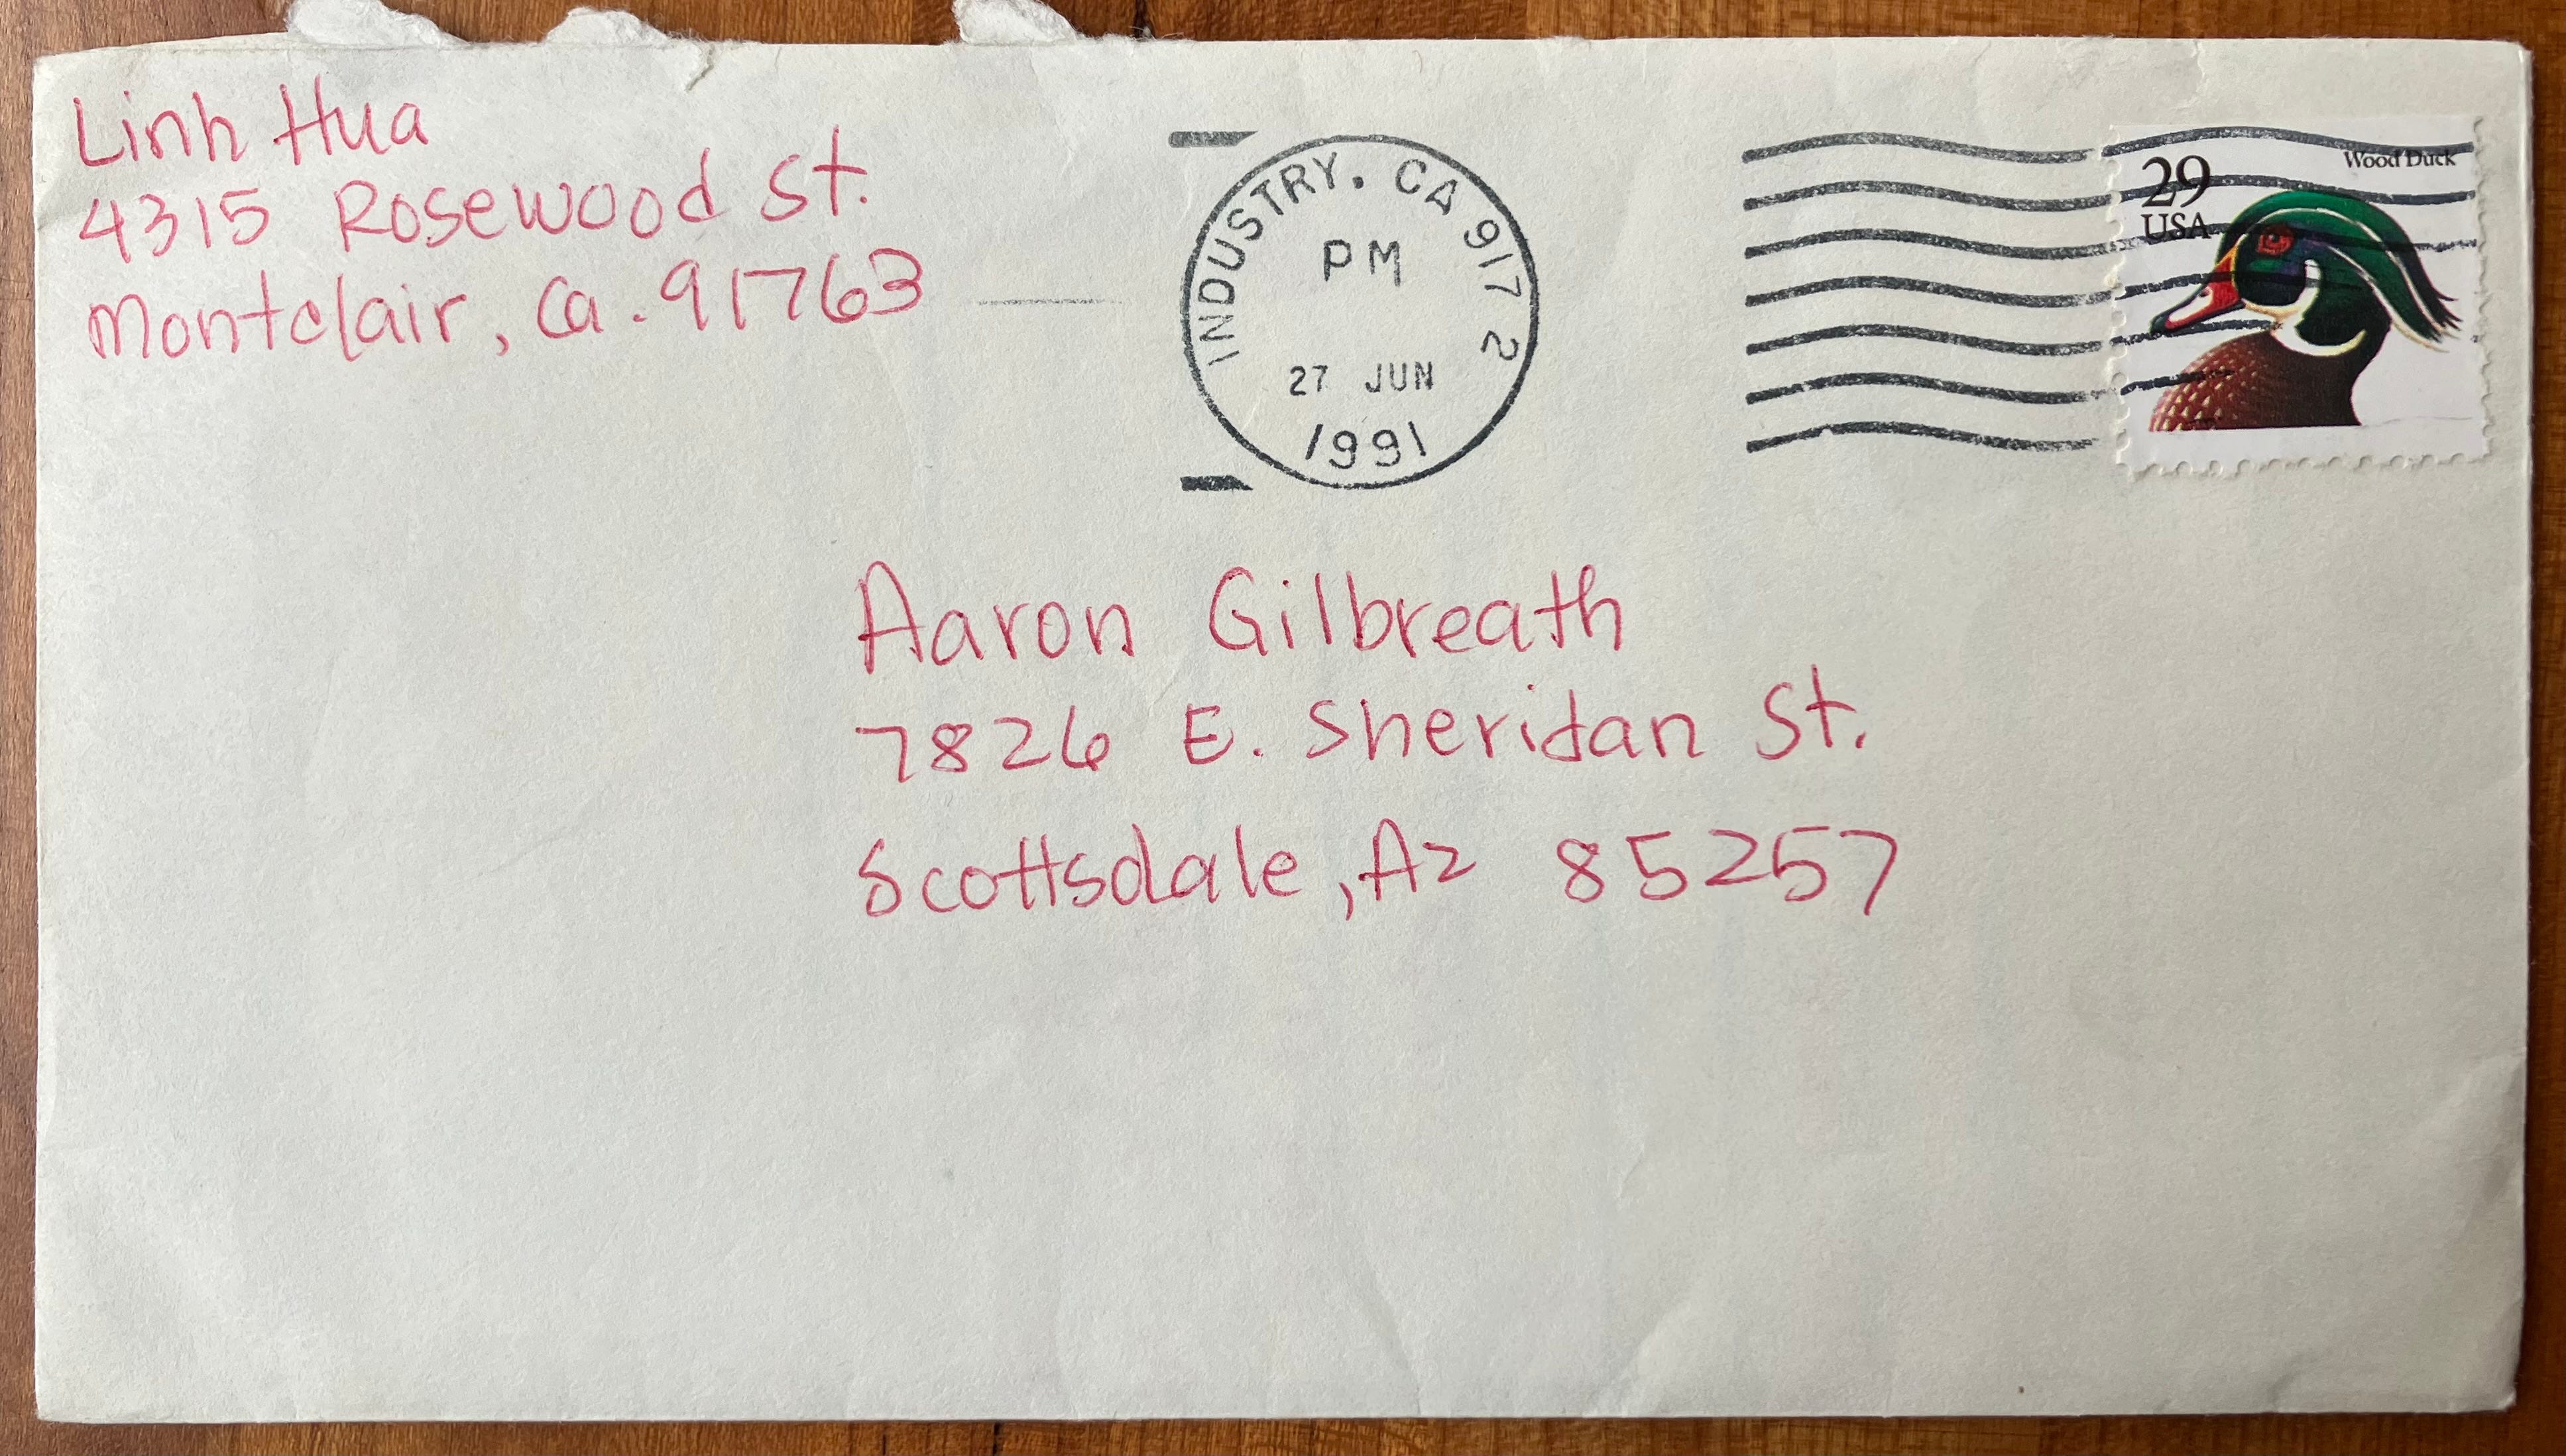 Linh Hua
4315 Rosewood St.
Montclair, Ca. 91763
INDUSTRY, CA 917 2
PM
27 JUN
1991
Wood Duck
29
USA
Aaron Gilbreath
7826 E. Sheridan St.
Scottsdale, Az 85257